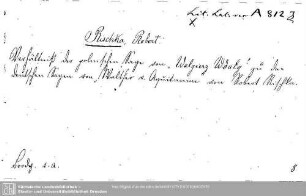 Lit. Lat. rec A 812 2
x
Rischka, Robert.
Verhältniss der polnischen Sage von "Walgierz Wdaly" zu den
deutschen Sagen von Walther v. Aquitanien von Robert Rischka.
Brody. s.a. 8
Sächsische Landesbibliothek -
Staats- und Universitätsbibliothek Dresden